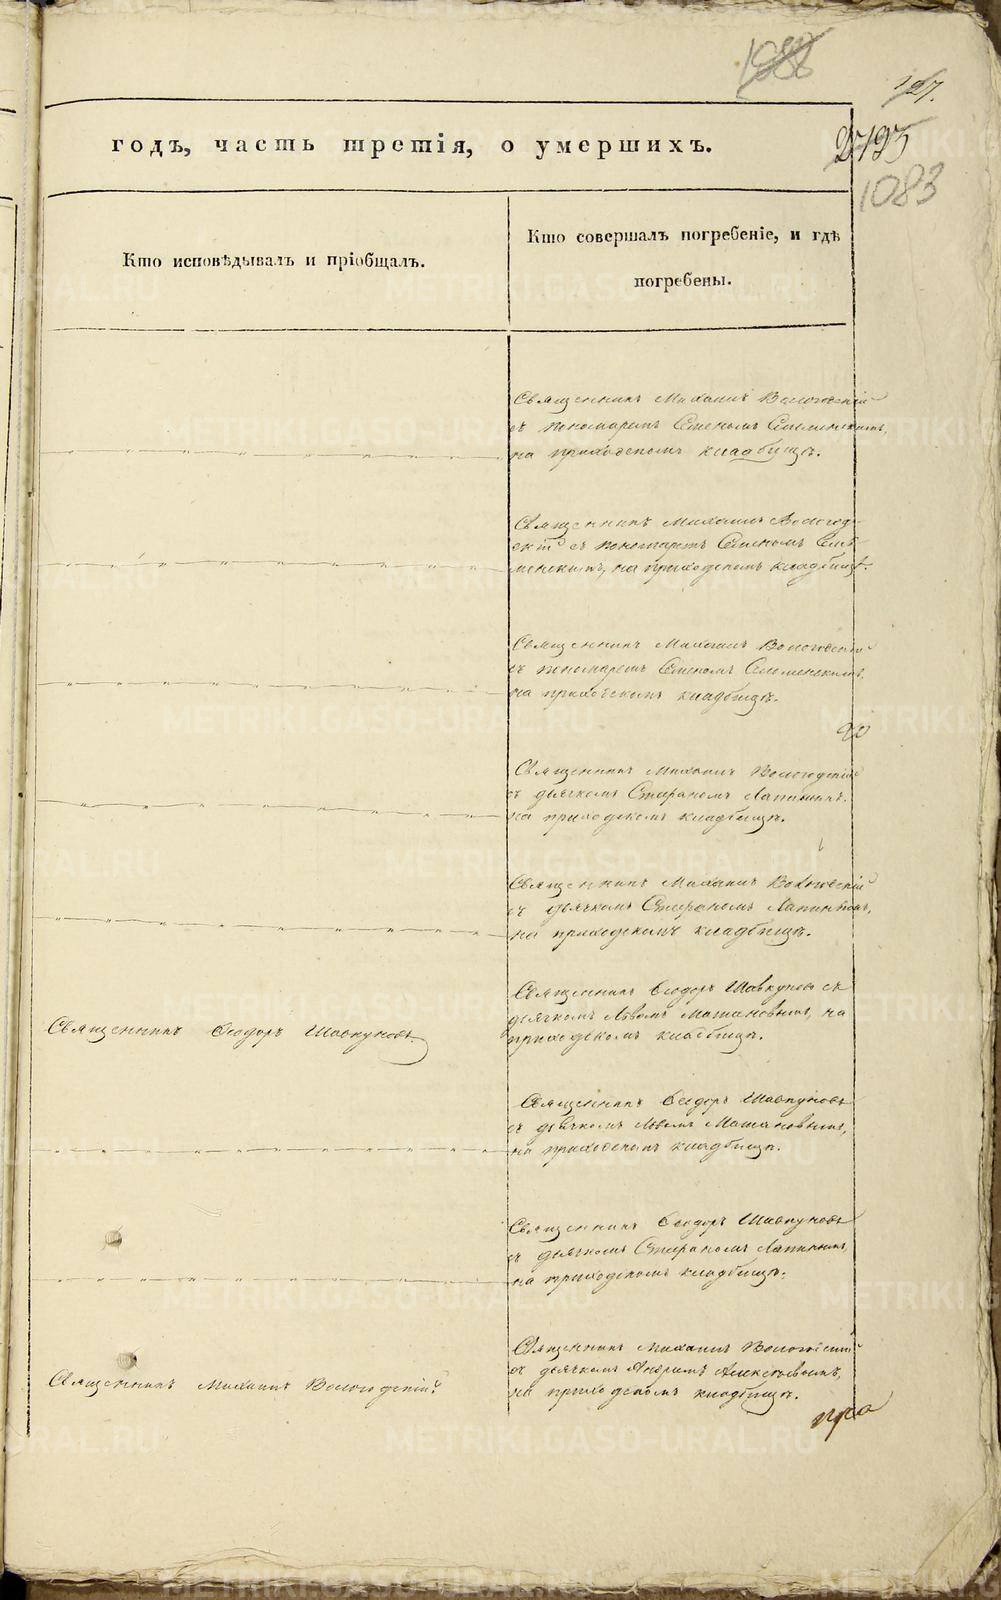 1088
127.
2195
1083
годъ, часть третія, о умершихъ.
Кто исповѣдывалъ и пріобщалъ.
Кто совершалъ погребеніе, и гдѣ
погребены.
Священникъ Михаилъ Вологодскій
съ пономаремъ Стеномъ
на приходскомъ кладбищѣ.
Священникъ Михаилъ Вологод-
скій съ пономаремъ
на приходскомъ кладбищѣ.
Священникъ Михаилъ Вологодскій
съ пономаремъ
на приходскомъ кладбищѣ.
Священникъ Михаилъ Вологодскій
съ дьячкомъ Стефаномъ Лапинымъ.
на приходскомъ кладбищѣ.
Священникъ Михаилъ Вологодскій
съ дьячкомъ Стефаномъ Лапинымъ,
на приходскомъ кладбищѣ.
Священникъ Ѳеодоръ Шавкуновъ
Священникъ Ѳеодоръ Шавкуновъ съ
дьячкомъ Львомъ на
приходскомъ кладбищѣ.
Священникъ Ѳеодоръ Шавкуновъ
съ дьячкомъ Львомъ
на приходскомъ кладбищѣ.
Священникъ Ѳеодоръ Шавкуновъ
съ дьячкомъ Стефаномъ Лапинымъ,
на приходскомъ кладбищѣ.
Священникъ Михаилъ Вологодскій
Священникъ Михаилъ Вологодскій
съ дьячкомъ Алексѣевымъ,
на приходскомъ кладбищѣ.
METRIKI.GASO-URAL.RU